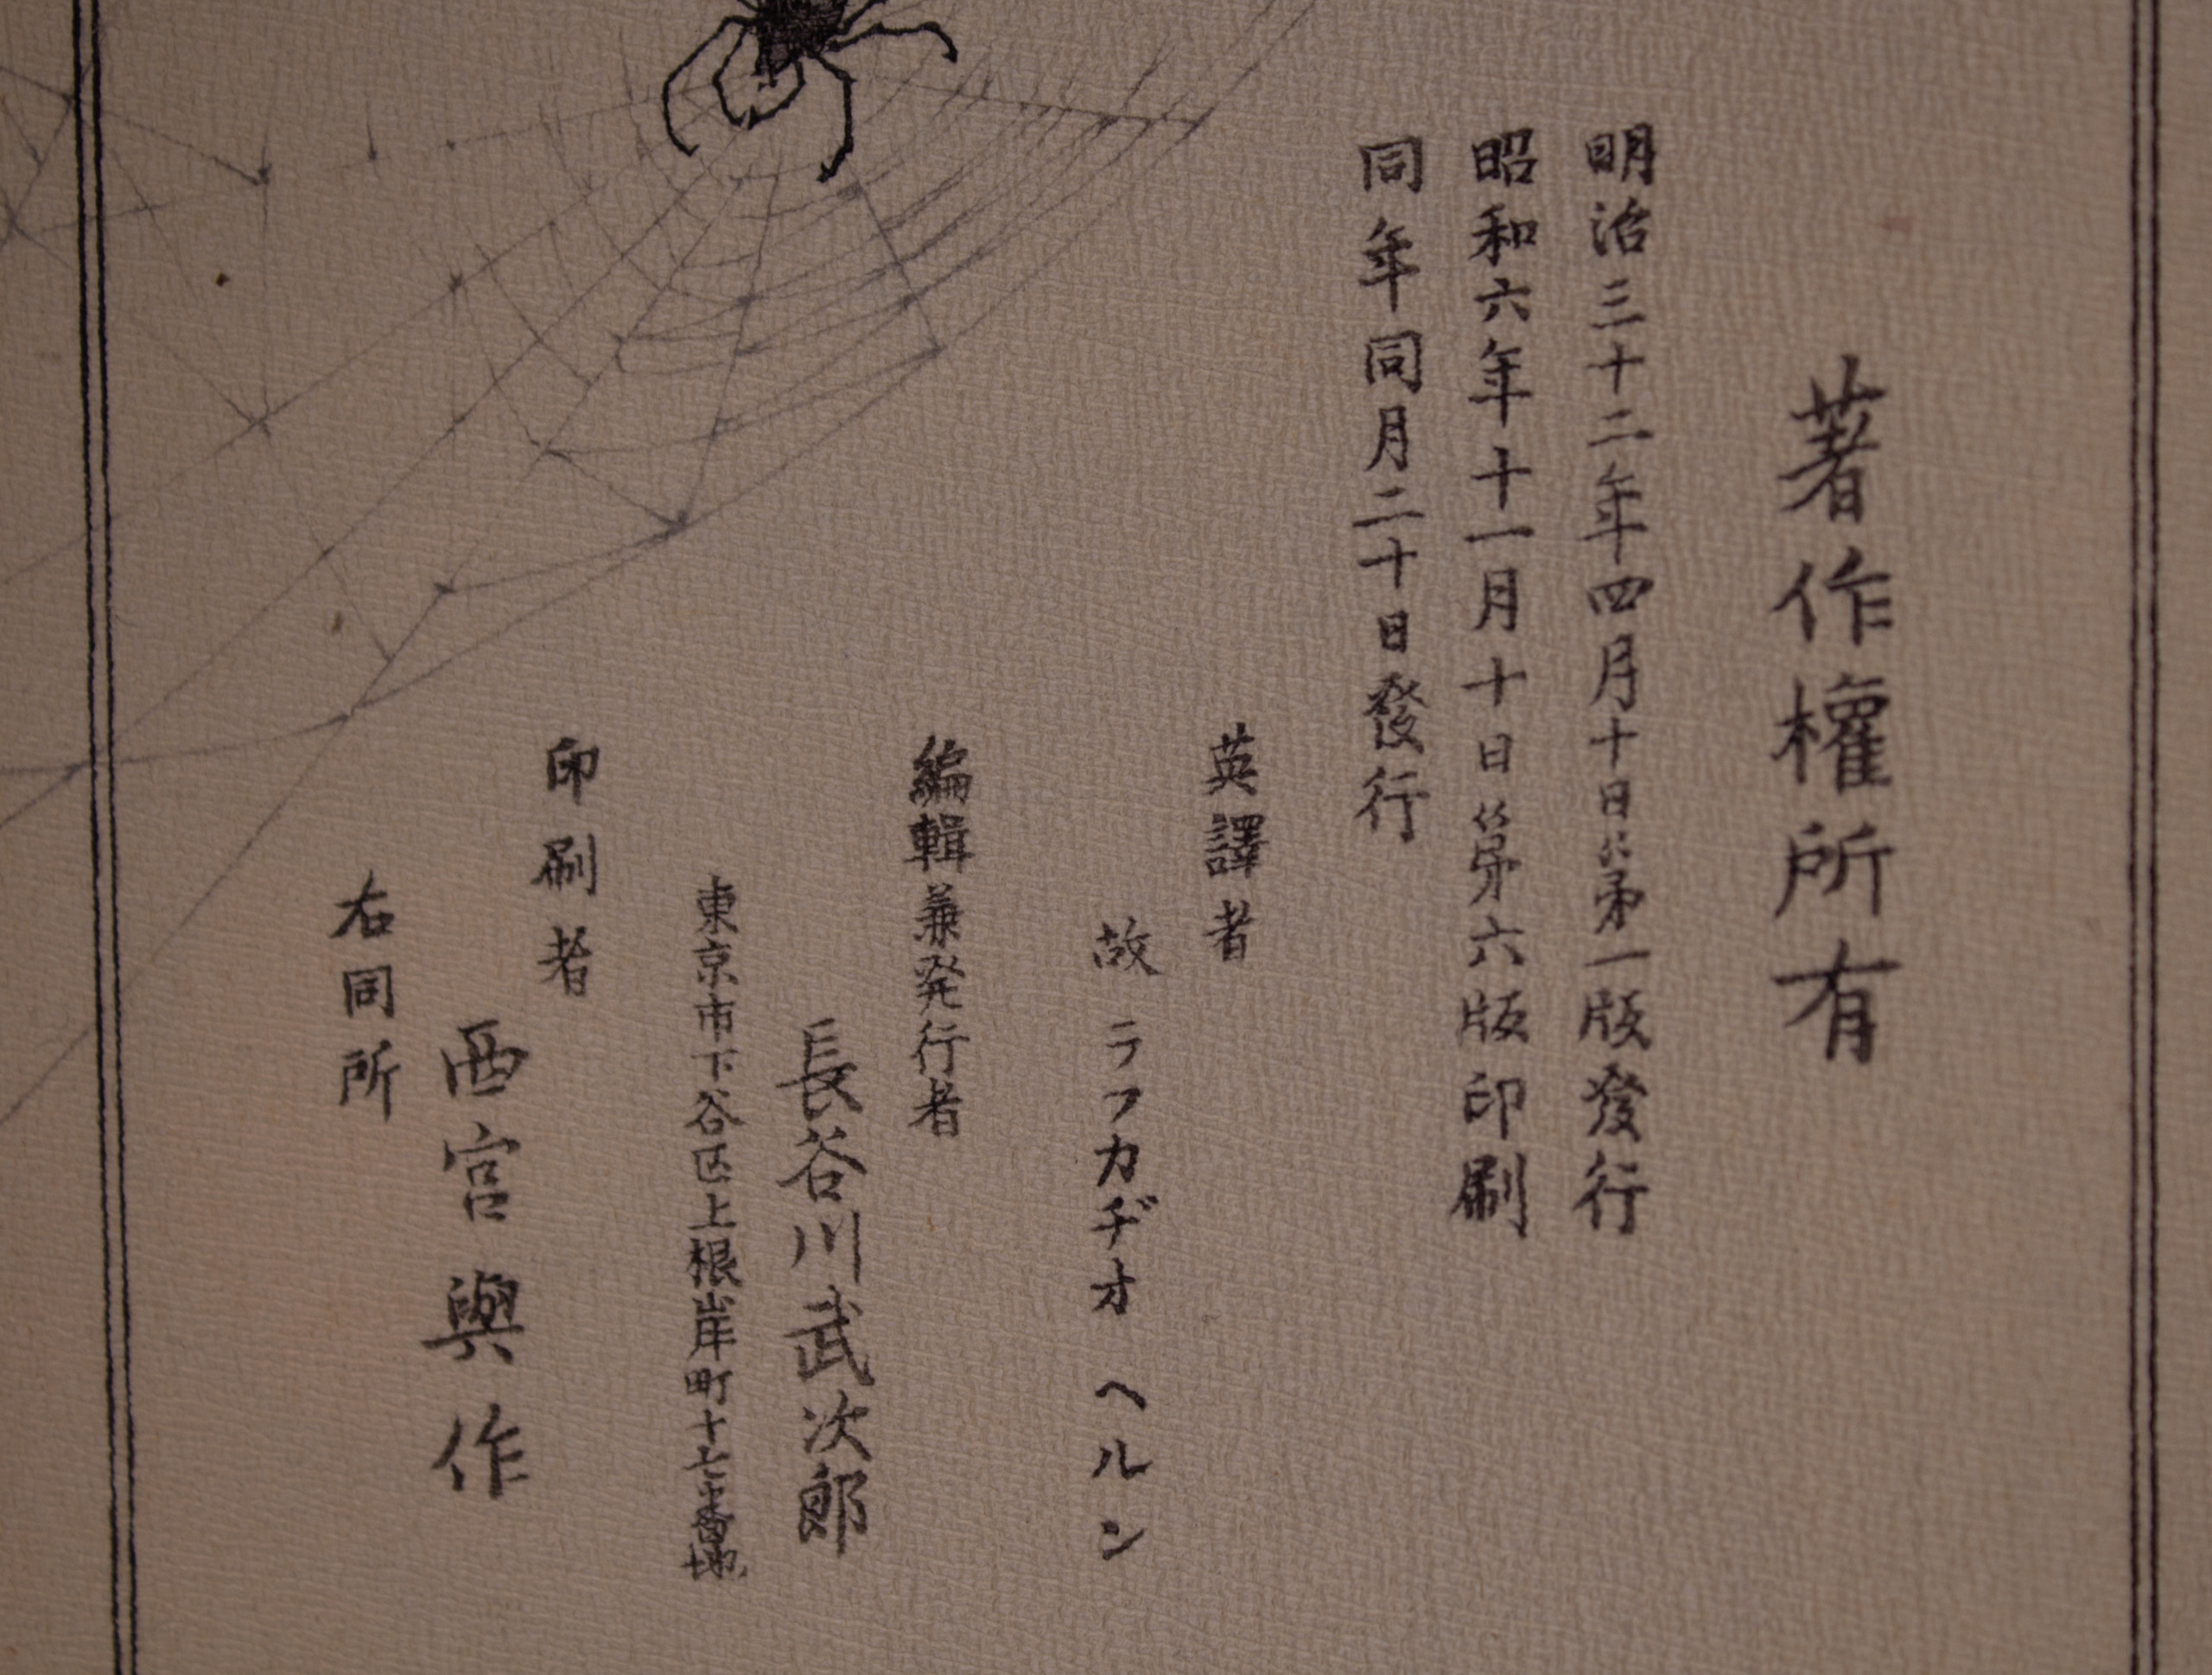 著作權所有
明治三十二年四月十日第一版發行
昭和六年十一月十日第六版印刷
同年同月二十日發行
英譯者
故 ラフカヂオ ヘルン
編輯兼発行者
長谷川武次郎
東京市下谷区上根岸町十七番地
印刷者
西宮與作
右同所